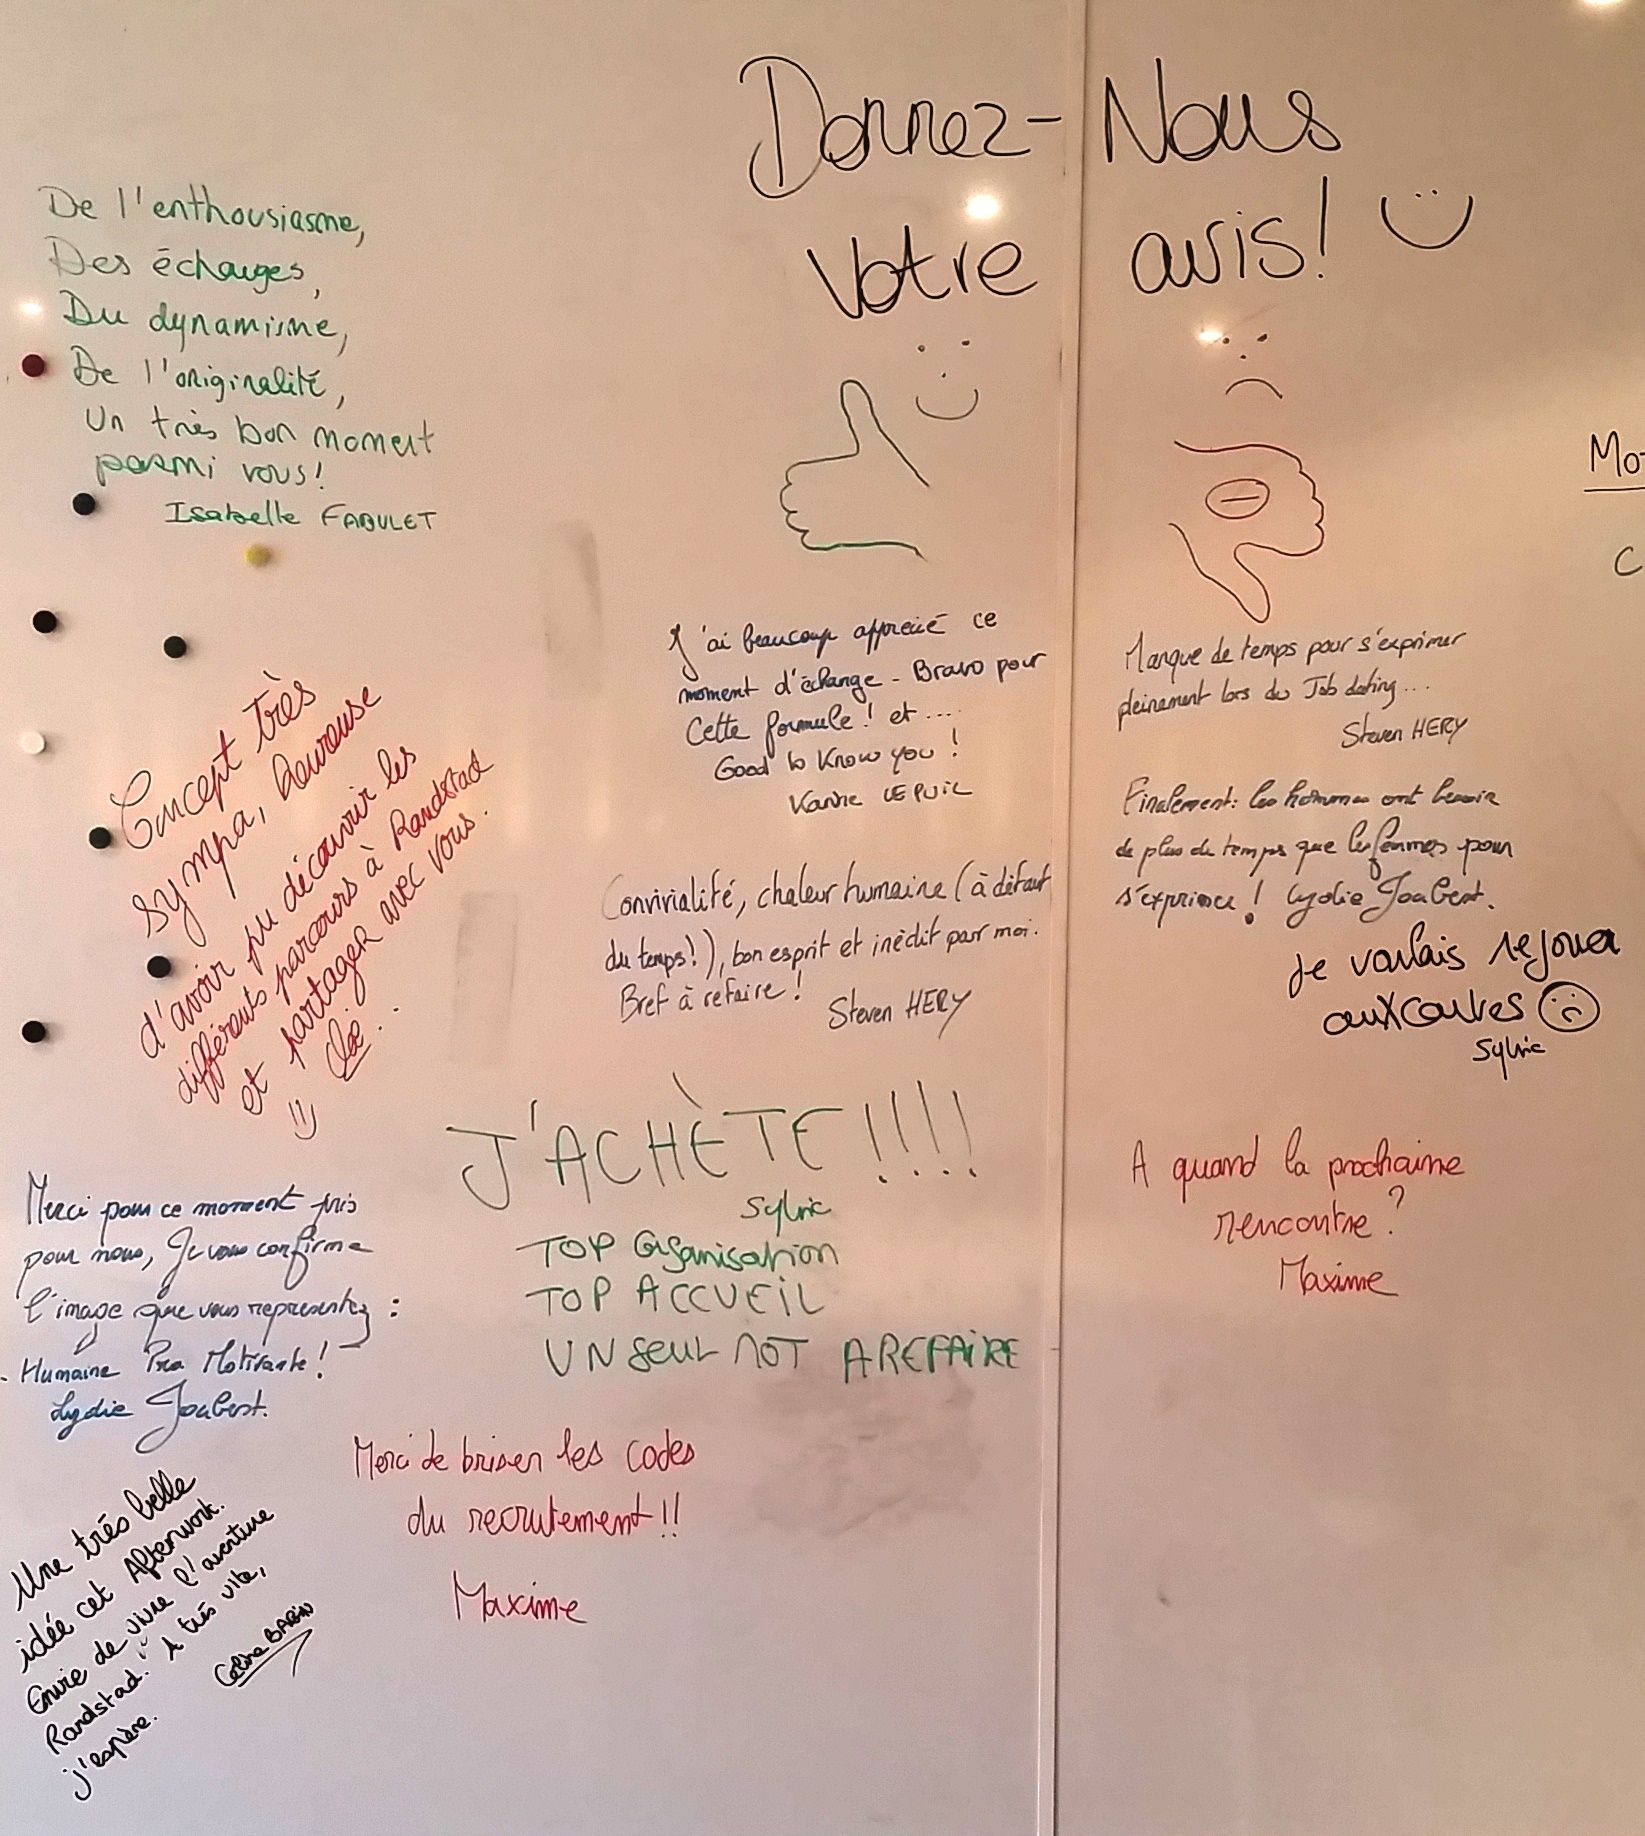 Donnez-Nous
Votre avis!
De l'enthousiasme,
Des échanges,
Du dynamisme,
De l'originalité,
Un très bon moment
parmi vous!
Isabelle FABULET
Concept très
sympa, heureuse
d'avoir pu découvrir les
différents parcours à Randstad
et partager avec vous.
Merci pour ce moment pris
pour nous, Je vous confirme
l'image que vous représentez :
Humaine Pro Motivante!
Lydie Joubert.
Une très belle
idée cet Afterwork.
Envie de vivre l'aventure
Randstad. A très vite,
j'espère.
Celine BABIN
J'ai beaucoup apprecié ce
moment d'échange - Bravo pour
Cette formule! et ....
Good to Know you!
Karine LEPUIL
Convivialité, chaleur humaine (à défaut
du temps!), bon esprit et inédit par moi.
Bref à refaire!
Steven HERY
J'ACHÈTE!!!!
Sylvie
TOP Organisation
TOP ACCUEIL
UN SEUL MOT A REFAIRE
Merci de briser les codes
du recrutement!!
Maxime
Manque de temps pour s'exprimer
pleinement lors du Job dating...
Steven HERY
Finalement: les hommes ont besoin
de plus de temps que les femmes pour
s'exprimer! Lydie Joubert.
Je voulais rejouer
aux cartes
Sylvie
A quand la prochaine
rencontre?
Maxime